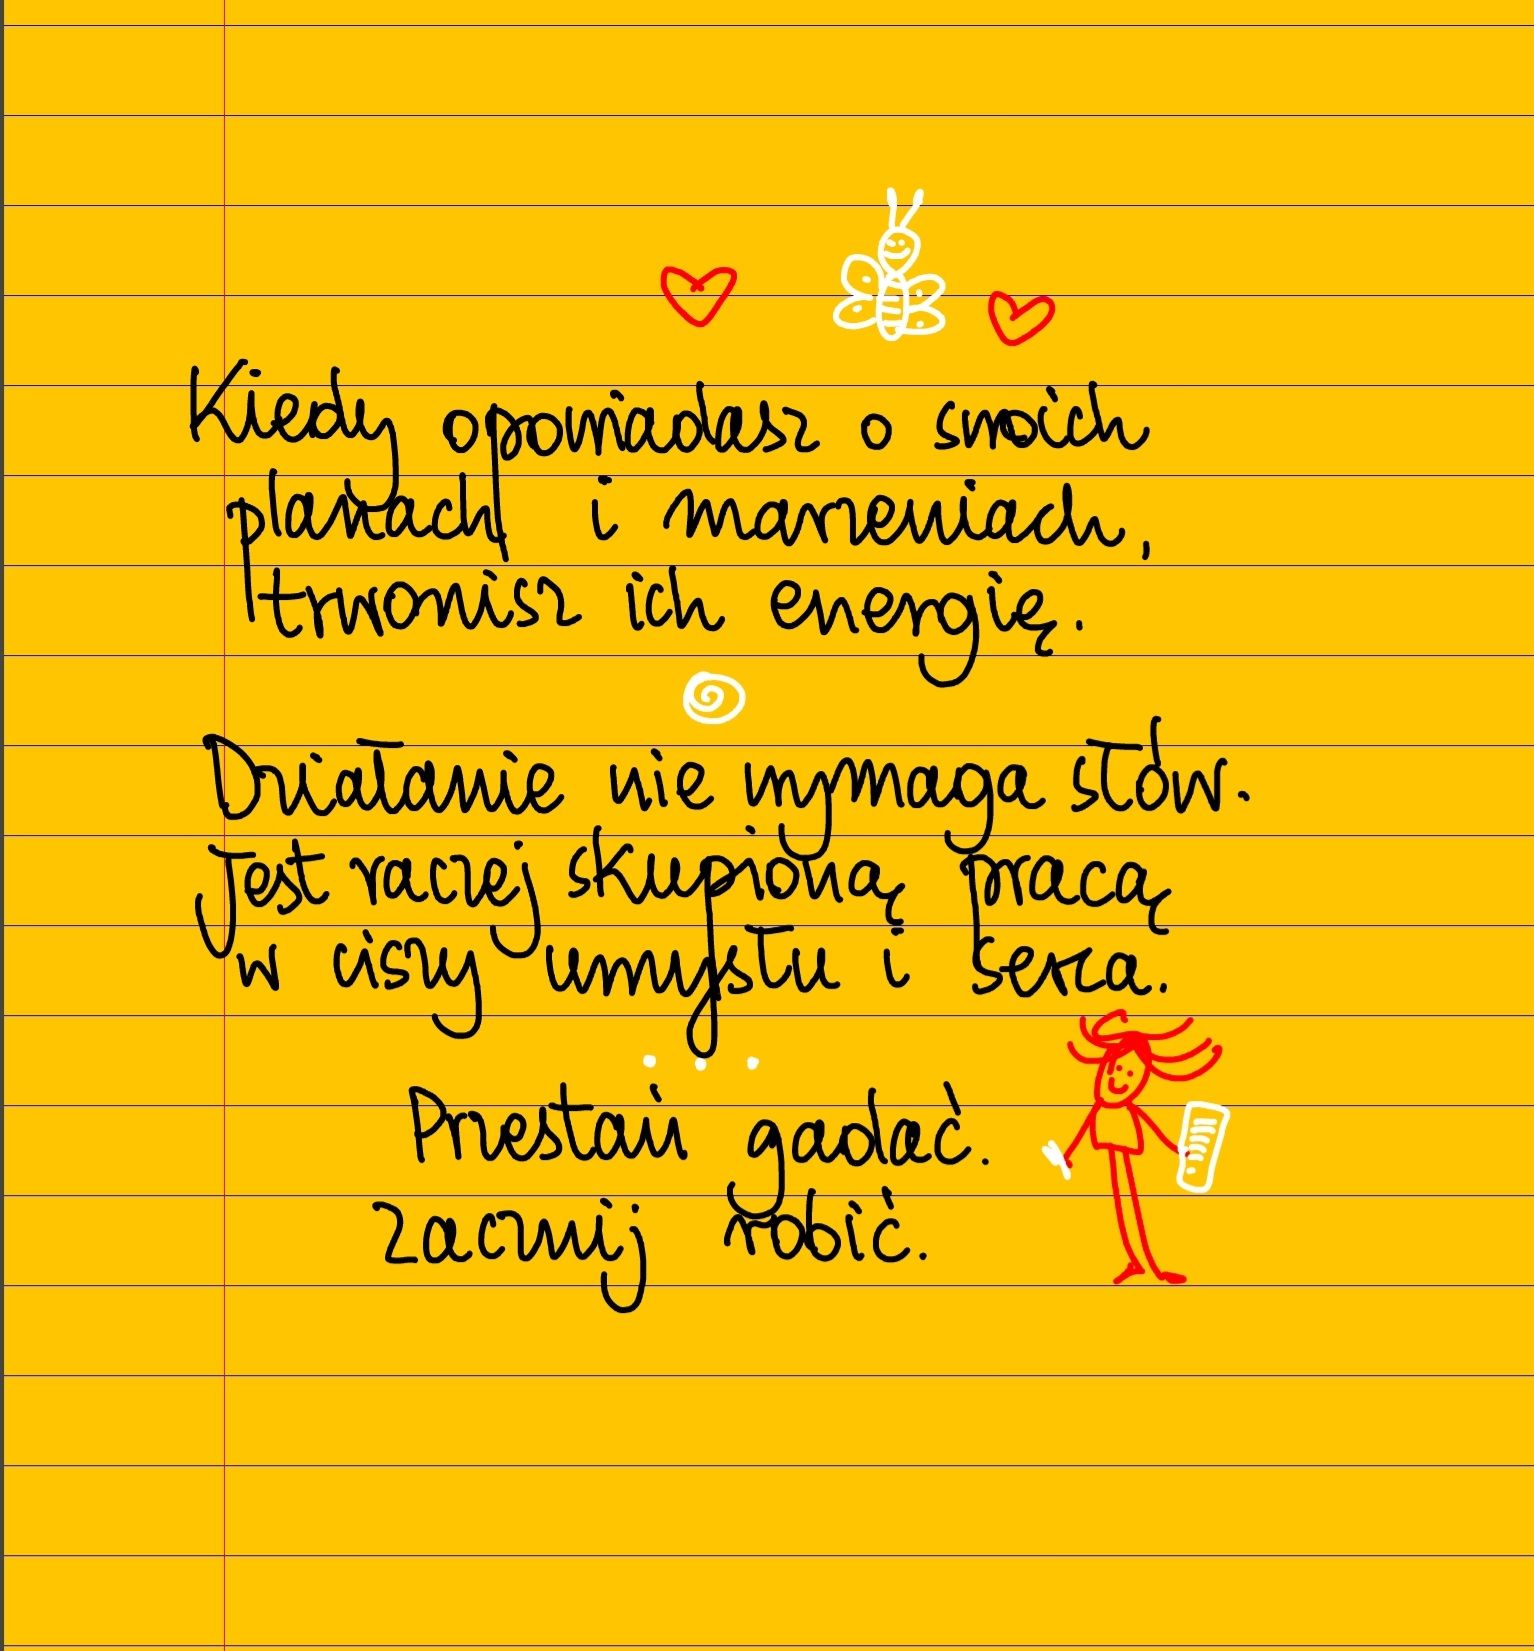 Kiedy opowiadasz o swoich
planach i marzeniach,
trwonisz ich energię.
Działanie nie wymaga słów.
Jest raczej skupioną pracą
w ciszy umysłu i serca.
...
Przestań gadać.
Zacznij robić.